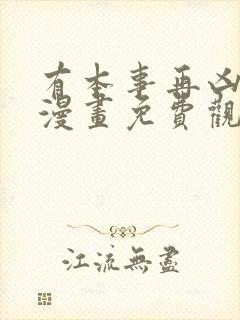 有本事再凶
漫畫免費觀
江流無盡